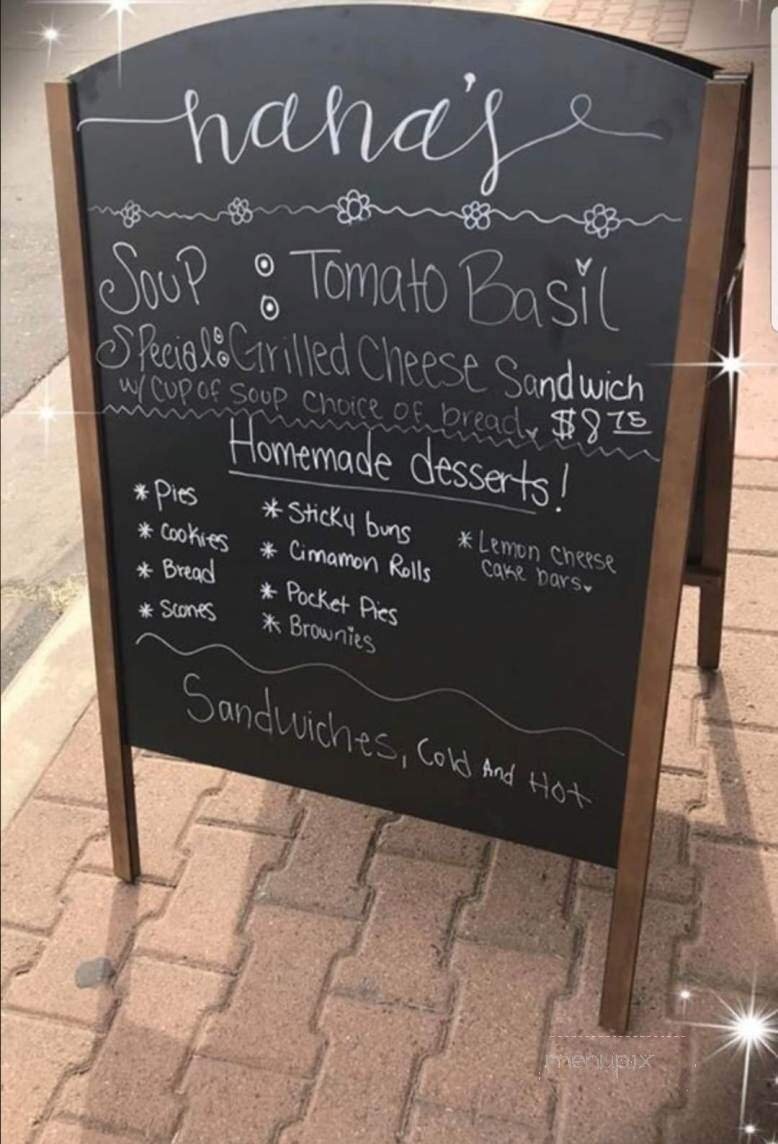 nana's
Soup : Tomato Basil
Special: Grilled Cheese Sandwich
w/ cup of soup choice of bread $8 75
Homemade desserts!
* Pies
* Cookies
* Bread
* Scones
* Sticky buns
* Cinnamon Rolls
* Pocket Pies
* Brownies
* Lemon cheese
cake bars.
Sandwiches, Cold And Hot
menupix